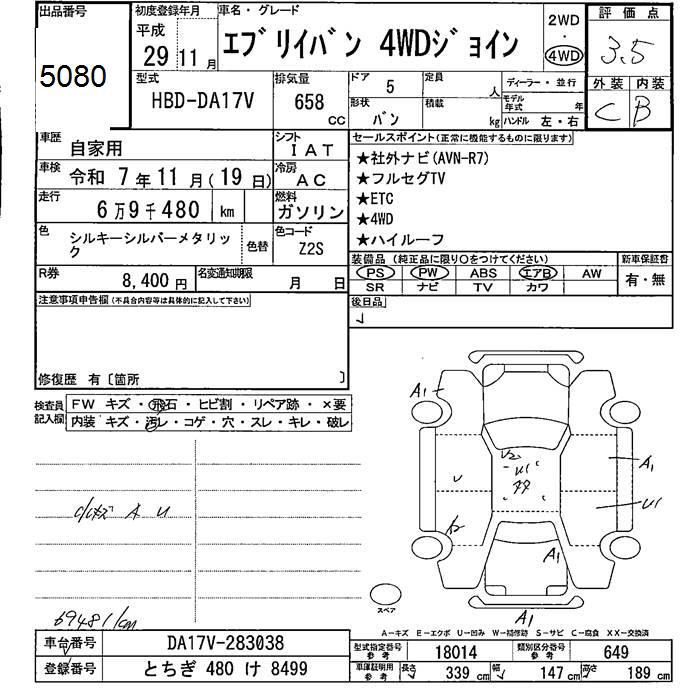 出品番号
5080
初度登録年月
平成
29 11 月
車名・グレード
エブリイバン 4WDジョイン
2WD
・
4WD
評価点
3.5
外装 内装
C B
型式
HBD-DA17V
排気量
658 CC
ドア 5
定員 人
ディーラー・並行
形状 バン
積載 kg
モデル年式 年
ハンドル 左・右
車歴
自家用
シフト
IAT
車検
令和 7 年 11 月 ( 19 日)
冷房
AC
走行
6 万 9 千 480 km
燃料
ガソリン
色
シルキーシルバーメタリック
色替
色コード
Z2S
R券
8,400 円
名変通知期限
月 日
セールスポイント(正常に機能するものに限ります)
★社外ナビ(AVN-R7)
★フルセグTV
★ETC
★4WD
★ハイルーフ
装備品 (純正品に限り○をつけてください)
新車保証書
PS PW ABS エアB AW
SR ナビ TV カワ
有・無
後日品
注意事項申告欄(不具合内容等は具体的に記入して下さい)
修復歴 有〔箇所 〕
検査員記入欄
FW キズ・飛石・ヒビ割・リペア跡・×要
内装 キズ・汚レ・コゲ・穴・スレ・キレ・破レ
A U
69481km
A1
A1
U
U1
A1
A1
スペア
A-キズ E-エクボ U-凹み W-補修跡 S-サビ C-腐食 XX-交換済
車台番号
DA17V-283038
登録番号
とちぎ 480 け 8499
型式指定番号 参考
18014
類別区分番号 参考
649
車庫証明用 参考
長さ 339 cm 幅 147 cm 高さ 189 cm